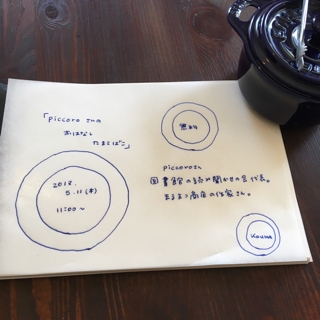 「piccoroさんの
おはなし
たまてばこ」
無料
2018.
5.11(木)
11:00〜
piccoroさん
図書館の読み聞かせの会代表。
作家さん。
Kauna